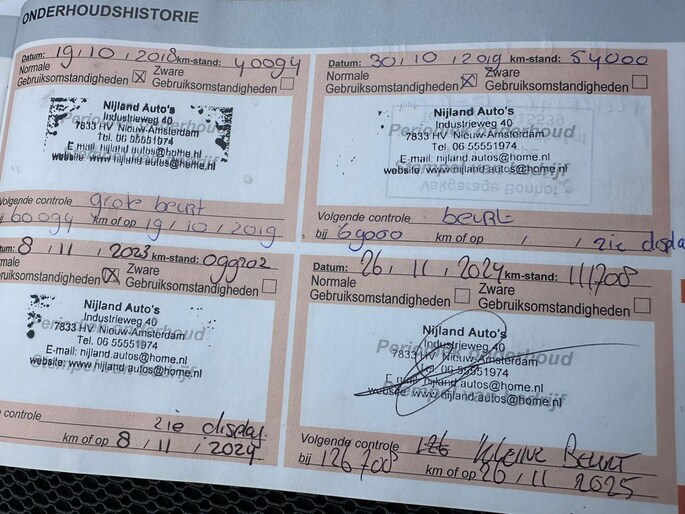 ONDERHOUDSHISTORIE
Datum: 19 / 10 / 2018 km-stand: 40094
Normale Gebruiksomstandigheden ☒ Zware Gebruiksomstandigheden ☐
Nijland Auto's
Industrieweg 40
7833 HV Nieuw-Amsterdam
Tel. 06 55551974
E-mail: nijland.autos@home.nl
website: www.nijland.autos@home.nl
Volgende controle grote beurt
bij 60094 km of op 19 / 10 / 2019
Datum: 30 / 10 / 2019 km-stand: 54000
Normale Gebruiksomstandigheden ☒ Zware Gebruiksomstandigheden ☐
Periodiek onderhoud
Nijland Auto's
Industrieweg 40
7833 HV Nieuw-Amsterdam
Tel. 06 55551974
E-mail: nijland.autos@home.nl
website: www.nijland.autos@home.nl
Volgende controle beurt
bij 69000 km of op / / zie displa
tum: 8 / 11 / 2023 km-stand: 099202
male Gebruiksomstandigheden ☒ Zware Gebruiksomstandigheden ☐
Nijland Auto's
Industrieweg 40
7833 HV Nieuw-Amsterdam
Tel. 06 55551974
E-mail: nijland.autos@home.nl
website: www.nijland.autos@home.nl
e controle zie display
km of op 8 / 11 / 2024
Datum: 26 / 11 / 2024 km-stand: 111708
Normale Gebruiksomstandigheden ☐ Zware Gebruiksomstandigheden ☐
Periodiek onderhoud
Nijland Auto's
Industrieweg 40
7833 HV Nieuw-Amsterdam
Tel. 06 55551974
E-mail: nijland.autos@home.nl
website: www.nijland.autos@home.nl
Volgende controle 126 Kleine Beurt
bij 126708 km of op 26 / 11 2025